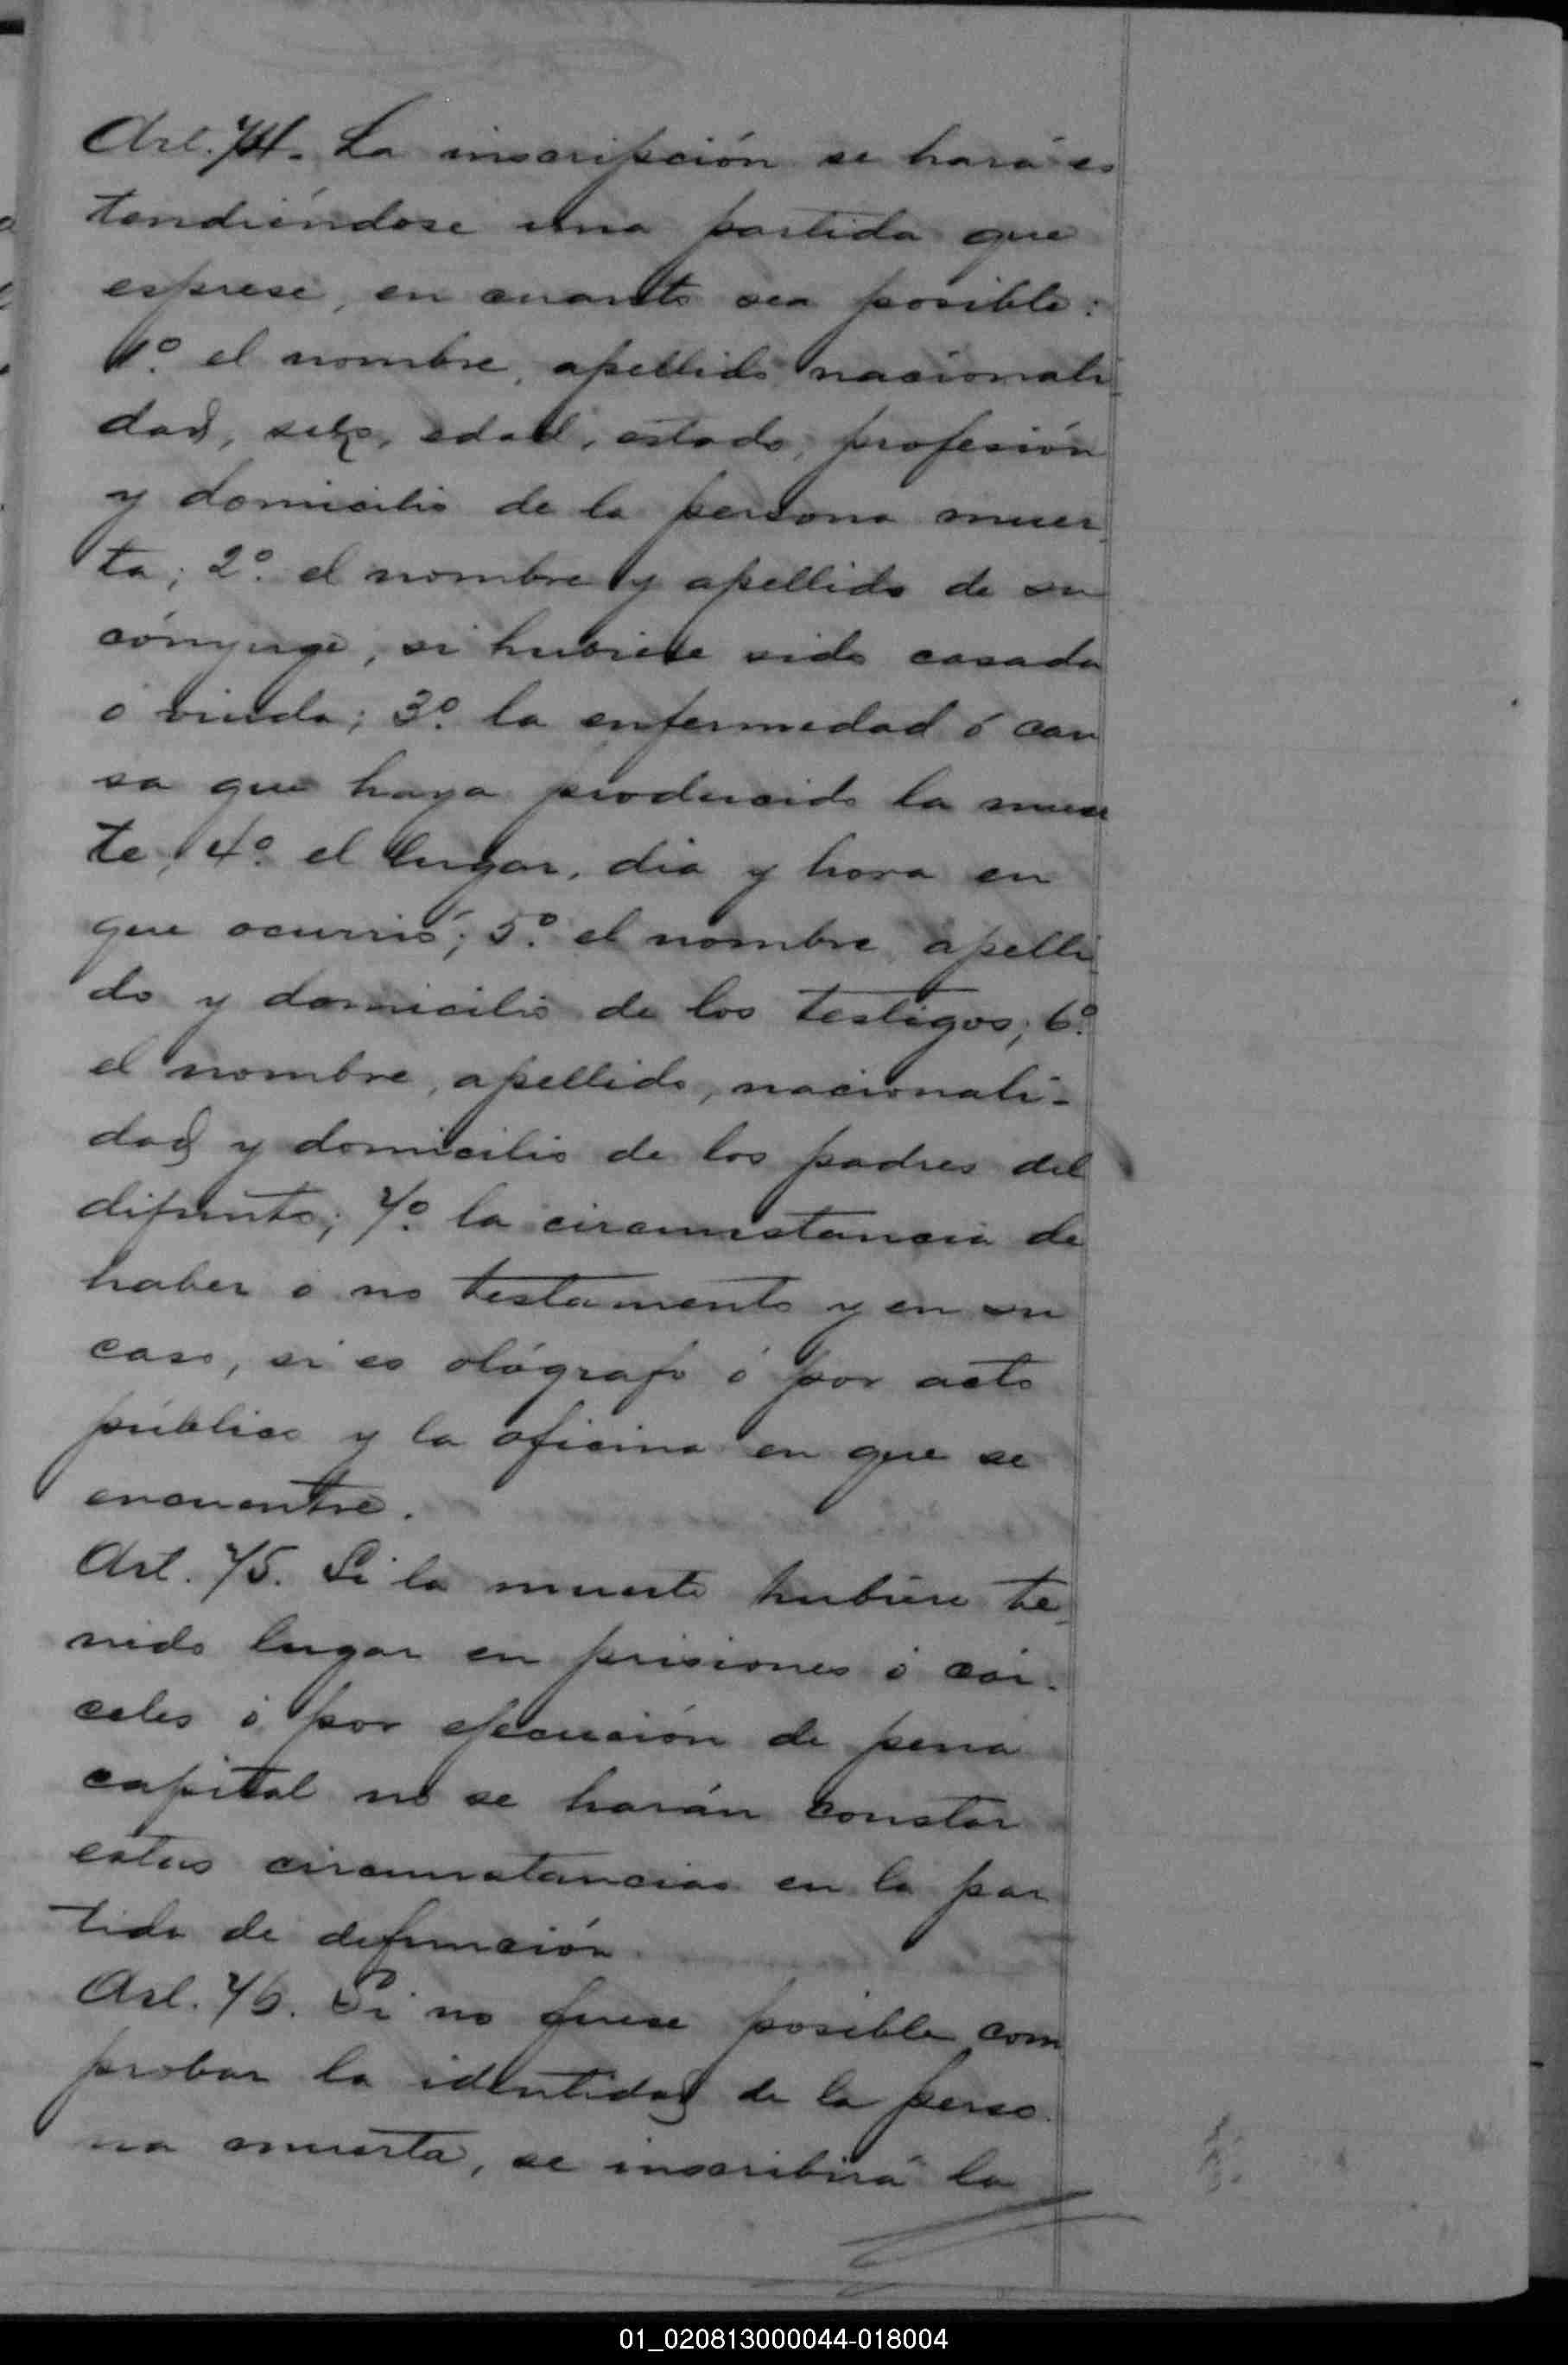 Art. 74. La inscripción se hará es
tendiéndose una partida que
esprese, en cuanto sea posible:
1º. el nombre, apellido nacionali
dad, sexo, edad, estado, profesión
y domicilio de la persona muer
ta; 2º. el nombre y apellido de su
cónyuge, si hubiese sido casada
o viuda; 3º. la enfermedad ó cau
sa que haya producido la muer
te; 4º. el lugar, dia y hora en
que ocurrió; 5º. el nombre, apelli
do y domicilio de los testigos; 6º.
el nombre, apellido, nacionali-
dad y domicilio de los padres del
difunto; 7º. la circunstancia de
haber o no testamento y en su
caso, si es ológrafo ó por acto
público y la oficina en que se
encuentre.
Art. 75. Si la muerte hubiere te
nido lugar en prisiones ó cár-
celes ó por ejecución de pena
capital no se harán constar
estas circunstancias en la par
tida de defunción
Art. 76. Si no fuese posible com
probar la identidad de la perso
na muerta, se inscribirá la
01_020813000044-018004